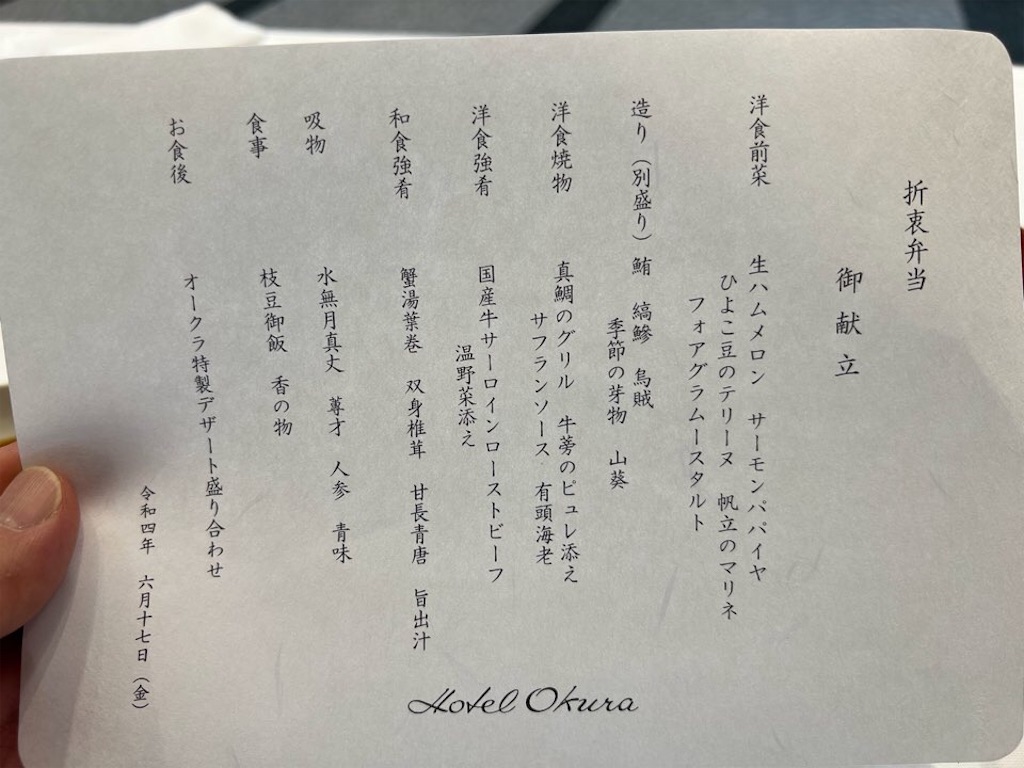 折衷弁当
御献立
洋食前菜 生ハムメロン サーモンパパイヤ
ひよこ豆のテリーヌ 帆立のマリネ
フォアグラムースタルト
造り（別盛り） 鮪 縞鰺 烏賊
季節の芽物 山葵
洋食焼物 真鯛のグリル 牛蒡のピュレ添え
サフランソース 有頭海老
洋食強肴 国産牛サーロインローストビーフ
温野菜添え
和食強肴 蟹湯葉巻 双身椎茸 甘長青唐 旨出汁
吸物 水無月真丈 蓴才 人参 青味
食事 枝豆御飯 香の物
お食後 オークラ特製デザート盛り合わせ
令和四年 六月十七日（金）
Hotel Okura